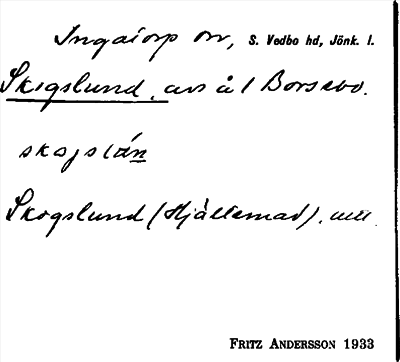 Ingatorp sn, S. Vedbo hd, Jönk. l.
Skogslund, avs å 1 Borsebo.
skogslún
Skogslund (Hjältemad).
FRITZ ANDERSSON 1933